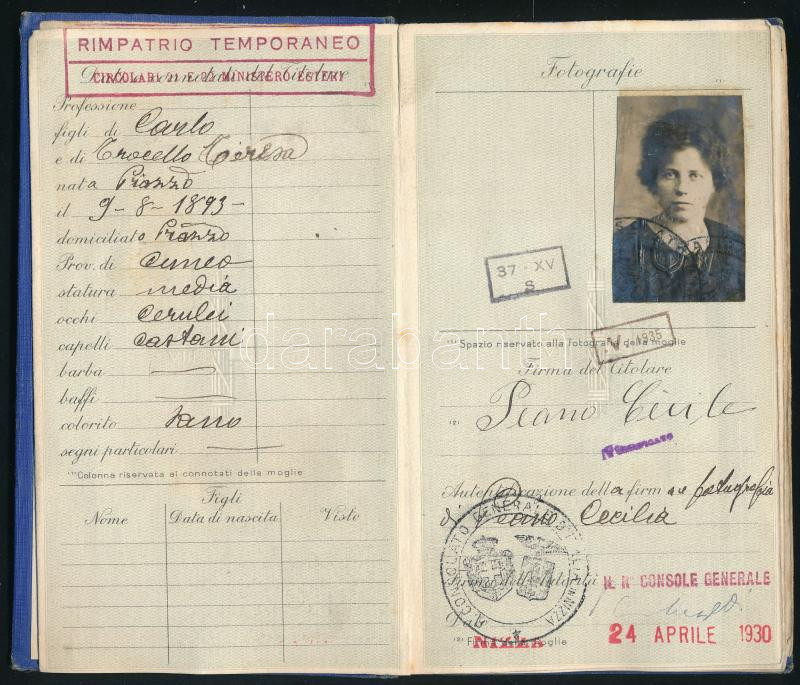 RIMPATRIO TEMPORANEO
CIRCOLARI 21 E MINISTERO ESTERI
Dati e connotati del Titolare
Professione
figli di Carlo
e di Crocello Teresa
nata Piozzo
il 9-8-1893-
domiciliato Piozzo
Prov. di Cuneo
statura media
occhi cerulei
capelli castani
barba —
baffi —
colorito sano
segni particolari —
Colonna riservata ai connotati della moglie
Figli
Nome Data di nascita Visto
Fotografie
37-XV
S
Spazio riservato alla fotografia della moglie
1935
Firma del Titolare
(2) Peano Cécile
VERIFICATO
Autenticazione della firma e fotografia
di Peano Cecilia
R. CONSOLATO GENERALE D'ITALIA IN NIZZA
Firma dell'Autorità
IL Rº CONSOLE GENERALE
24 APRILE 1930
(2) Firma della moglie
NIZZA
darabanth